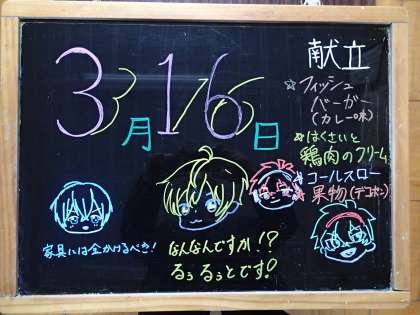 3月16日
献立
☆フィッシュ
バーガー
(カレー味)
☆はくさいと
鶏肉のクリーム
☆コールスロー
☆果物(デコポン)
家具には全かけるべき!
なんなんですか!?
るぅ るぅとです!